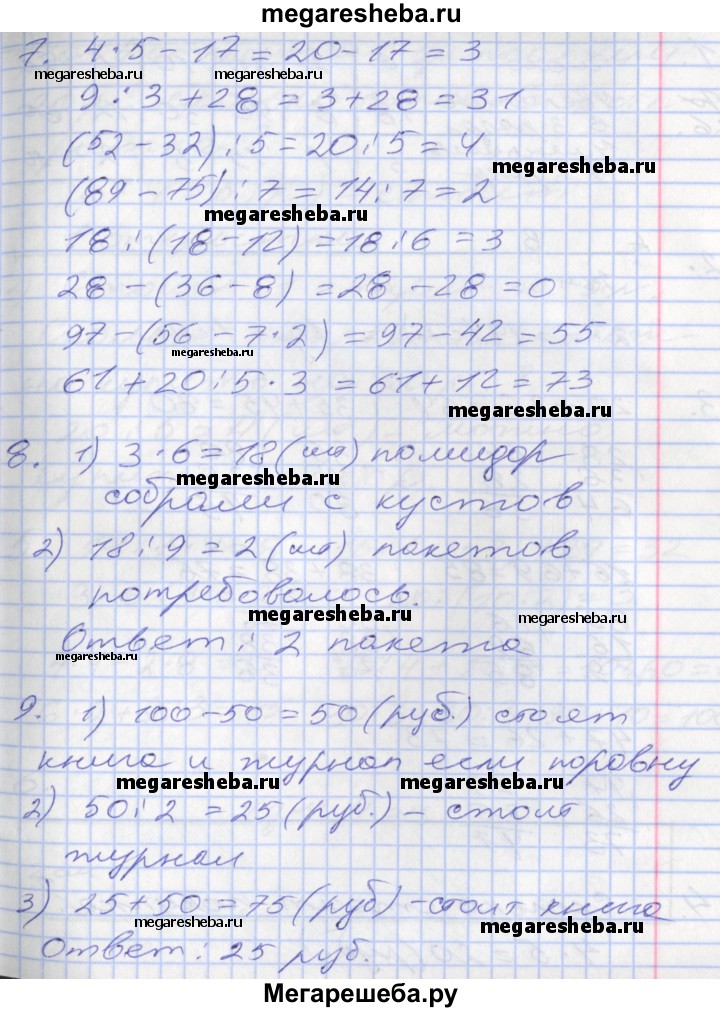 megaresheba.ru
7. 4·5-17=20-17=3
megaresheba.ru megaresheba.ru
9:3+28=3+28=31
(52-32):5=20:5=4
megaresheba.ru
(89-75):7=14:7=2
megaresheba.ru
18:(18-12)=18:6=3
28-(36-8)=28-28=0
97-(56-7·2)=97-42=55
megaresheba.ru
61+20:5·3=61+12=73
megaresheba.ru
8. 1) 3·6=18(шт) помидор
megaresheba.ru
собрали с кустов
2) 18:9=2(шт) пакетов
потребовалось.
megaresheba.ru megaresheba.ru
Ответ: 2 пакета
megaresheba.ru
9. 1) 100-50=50(руб.) стоят
книга и журнал если поровну
megaresheba.ru megaresheba.ru
2) 50:2=25(руб.) - стоит
журнал
3) 25+50=75(руб) - стоит книга
megaresheba.ru megaresheba.ru
Ответ: 25 руб.
Мегарешеба.ру